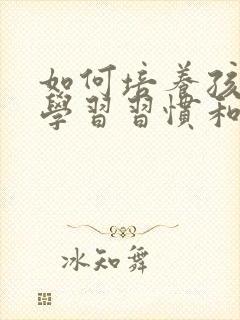 如何培养孩
學習習慣和
冰知舞